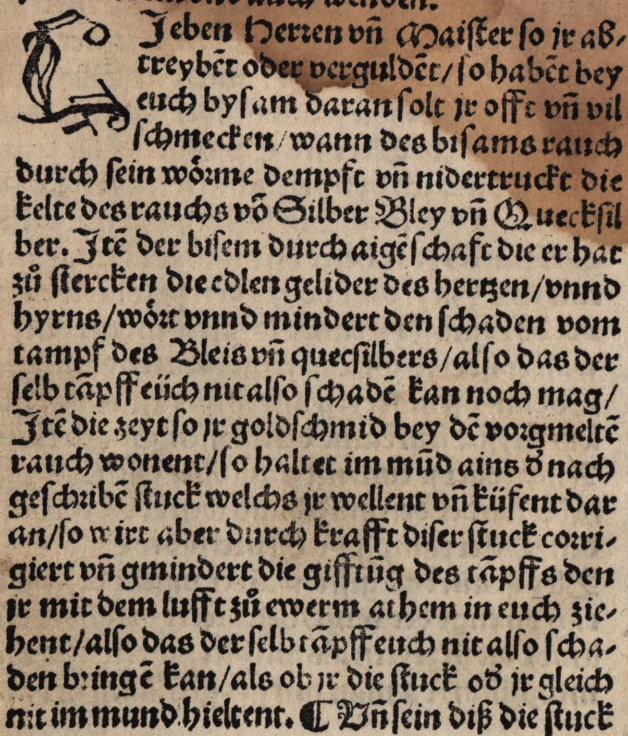 Lieben Herren vn̄ Maister so jr ab⸗
treybēt oder verguldēt/ so habēt bey
euch bysam daran solt jr offt vn̄ vil
schmecken/ wann des bisams rauch
durch sein wörme dempft vn̄ nidertruckt die
kelte des rauchs vō Silber Bley vn̄ Quecksil
ber. Jtē der bisem durch aigēschaft die er hat
zů stercken die edlen gelider des hertzen/ vnnd
hyrns/ wört vnnd mindert den schaden vom
tampf des Bleis vn̄ quecsilbers/ also das der
selb tāpff eüch nit also schadē kan noch mag/
Jtē die zeyt so jr goldschmid bey dē vorgmeltē
rauch wonent/ so haltet im mūd ains d̄ nach
geschribē stuck welchs jr wellent vn̄ küfent dar
an/ so wirt aber durch krafft diser stuck corri⸗
giert vn̄ gmindert die gifftūg des tāpffs den
jr mit dem lufft zů ewerm athem in euch zie⸗
hent/ also das der selb tāpff euch nit also scha⸗
den bringē kan/ als ob jr die stuck od̄ jr gleich
nit im mund hieltent. ¶ Vn̄ sein diß die stuck